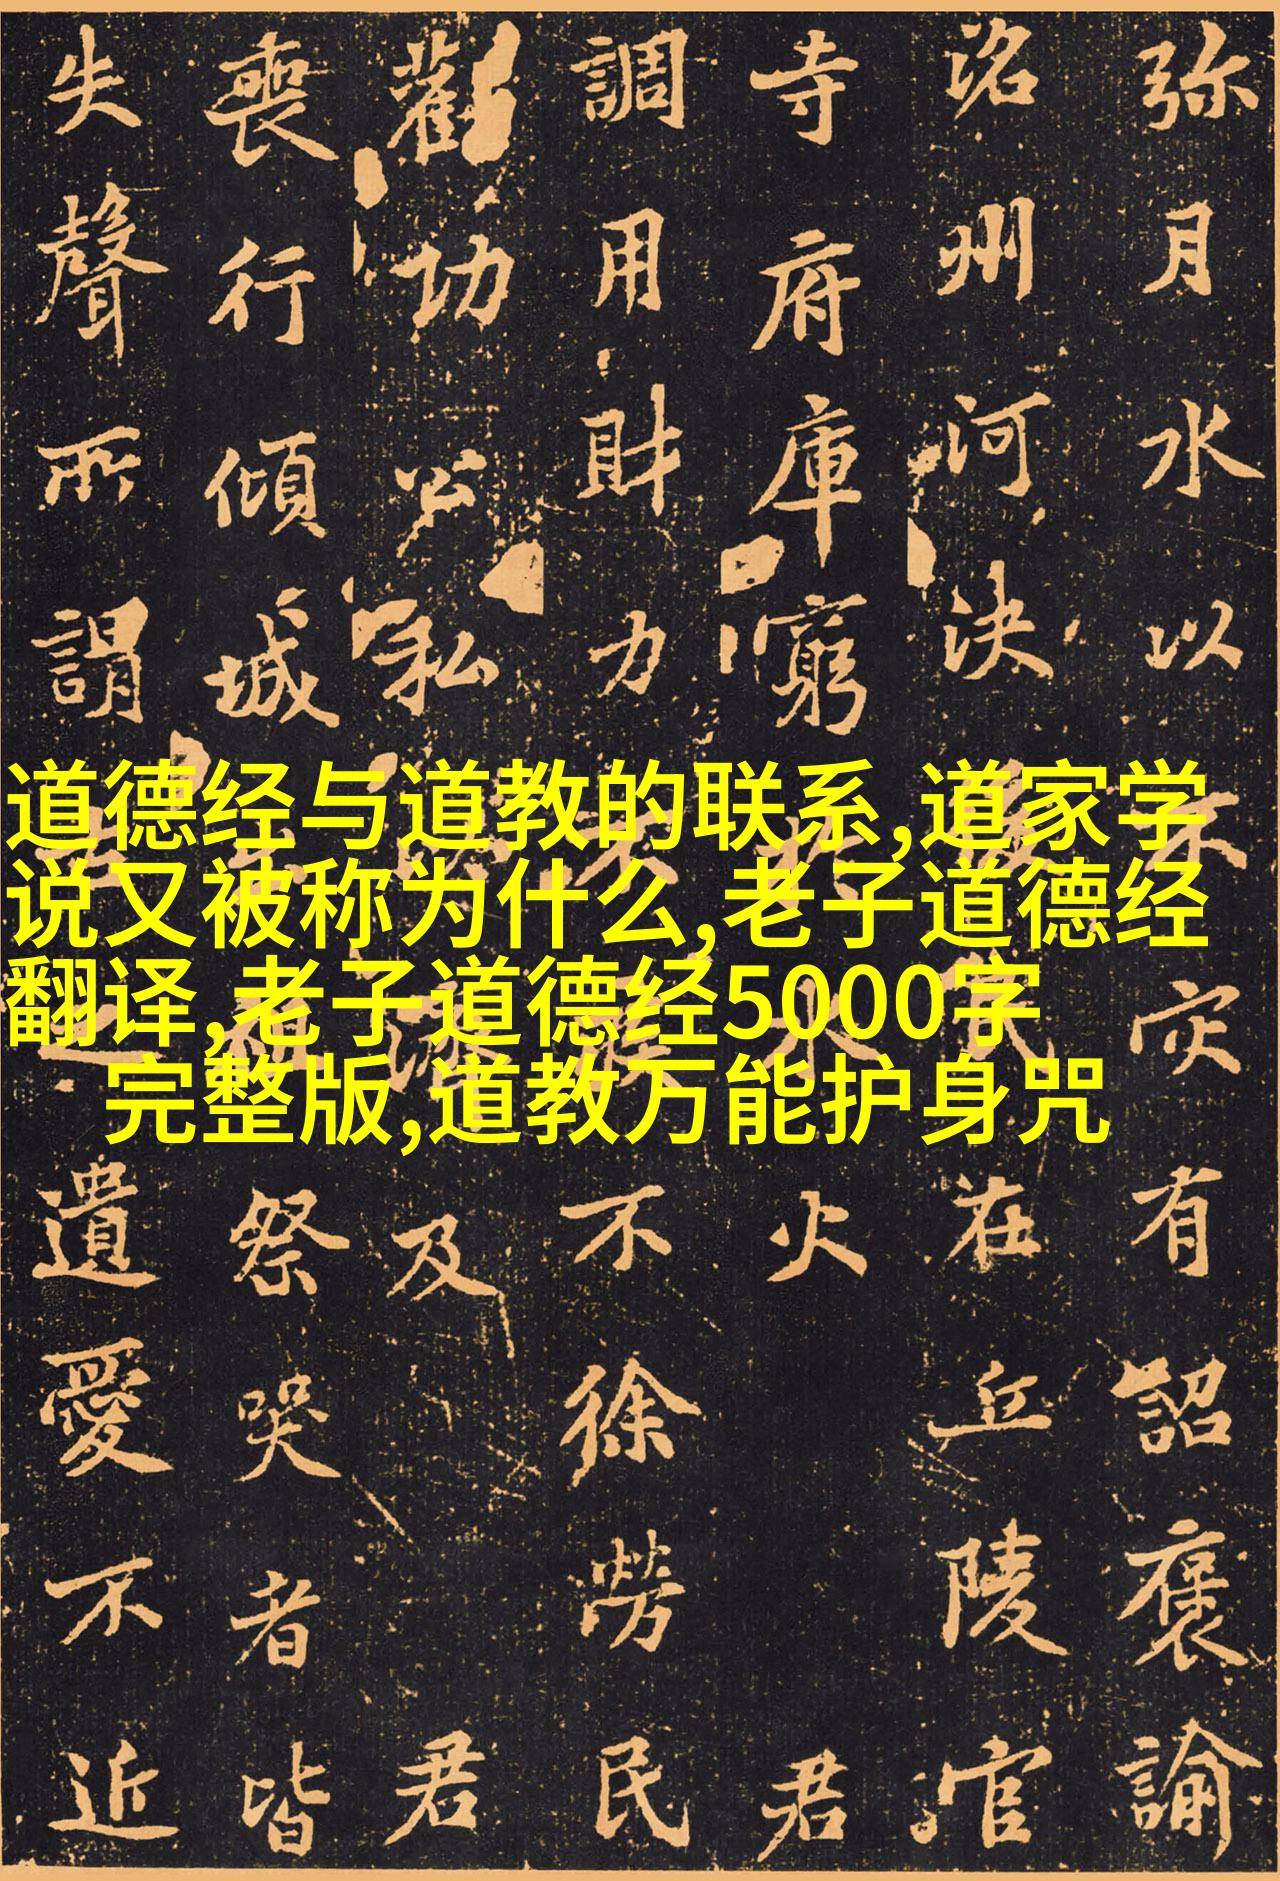 弥月水以不灾有詔褒諭
洺州河決民在丘陵官
寺府庫窮於水火君
調用財力不徐勞民
勸功公私及君
喪行傾城祭哭者皆
失聲所謂之遺愛不近
道德经与道教的联系,道家学
说又被称为什么,老子道德经
翻译,老子道德经5000字
完整版,道教万能护身咒